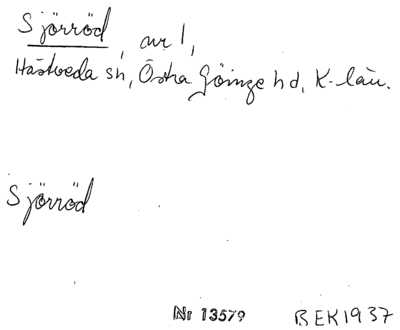 Sjörröd, nr 1,
Hästveda sn, Östra Göinge hd, K-län.
Sjörröd
Nr 13579 BEK1937